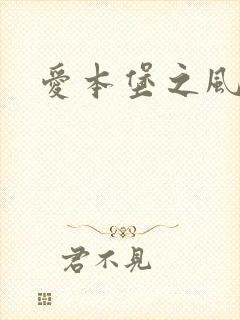 愛本堡之風
君不見